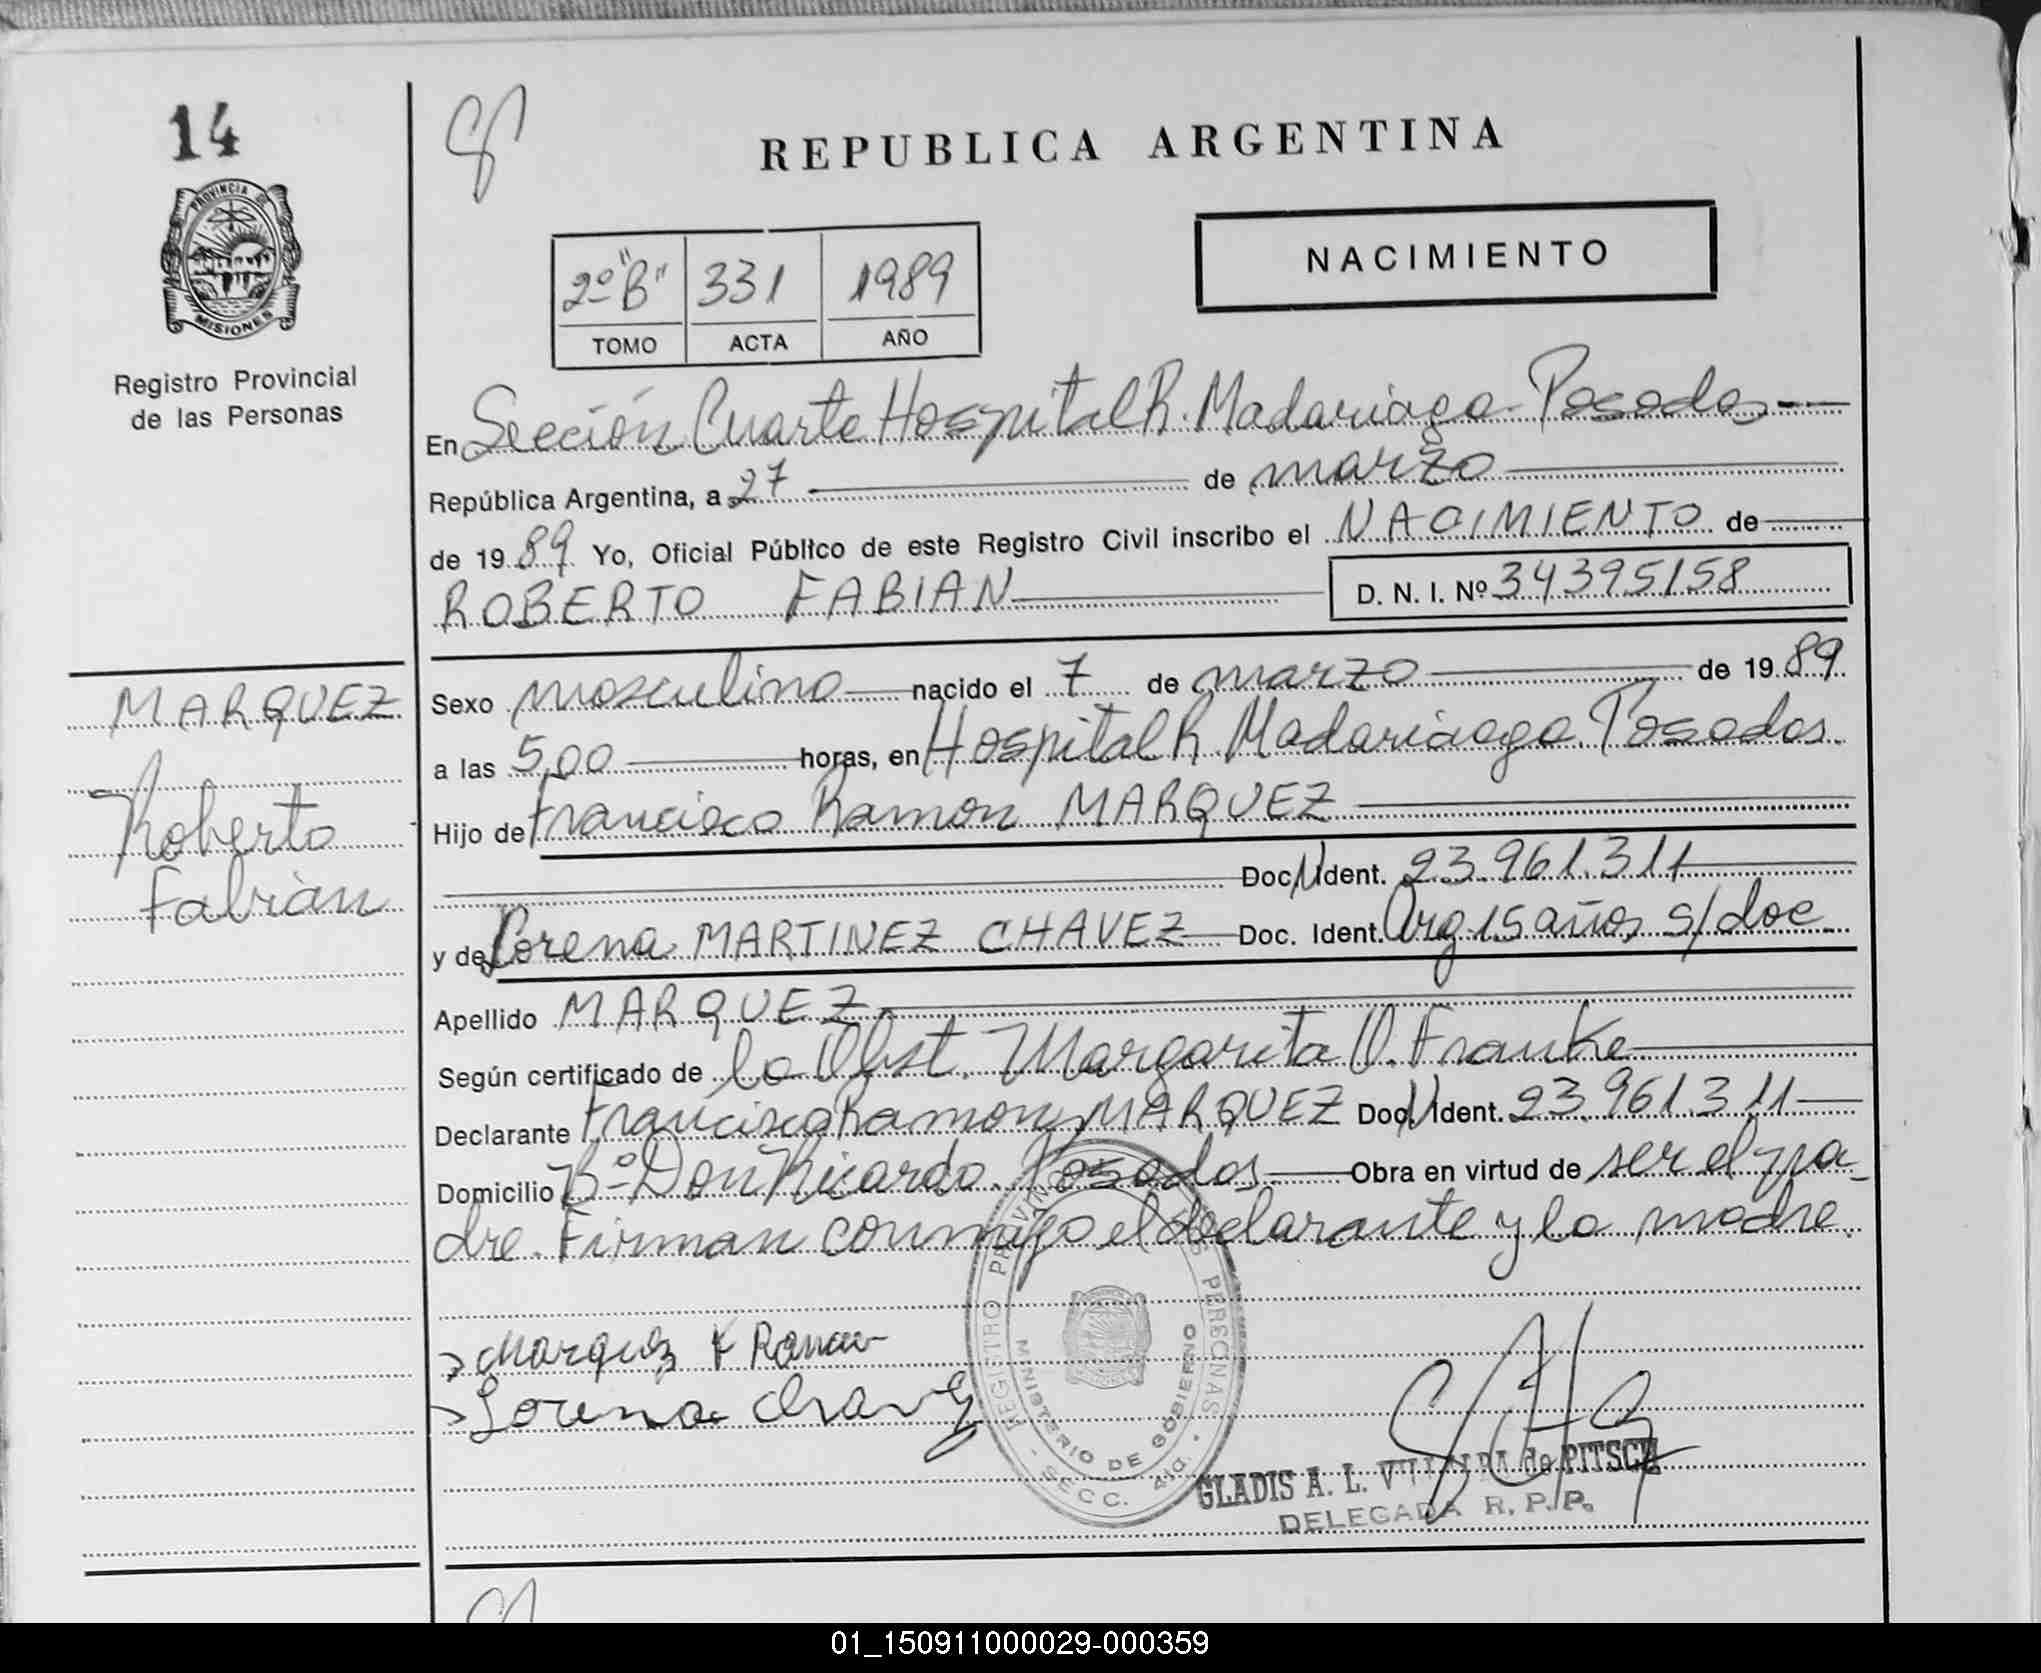 14
PROVINCIA DE
MISIONES
Registro Provincial
de las Personas
REPUBLICA ARGENTINA
NACIMIENTO
2º "B" 331 1989
TOMO ACTA AÑO
En Sección Cuarta Hospital R. Madariaga. Posadas
República Argentina, a 27 de marzo
de 19 89 Yo, Oficial Público de este Registro Civil inscribo el NACIMIENTO de
ROBERTO FABIAN D. N. I. Nº 34395158
MARQUEZ
Roberto
Fabián
Sexo masculino nacido el 7 de marzo de 19 89
a las 5,00 horas, en Hospital R. Madariaga. Posadas.
Hijo de Francisco Ramon MARQUEZ
Doc. Ident. 23.961.311
y de Lorena MARTINEZ CHAVEZ Doc. Ident. Arg 15 años s/doc.
Apellido MARQUEZ
Según certificado de la Obst. Margarita O. Franke
Declarante Francisco Ramon MARQUEZ Doc. Ident. 23.961.311
Domicilio Bº Don Ricardo. Posadas Obra en virtud de ser el pa-
dre. Firman conmigo el declarante y la madre.
Marquez F Ramon
Lorena Chavez
REGISTRO PROVINCIAL DE LAS PERSONAS
MINISTERIO DE GOBIERNO
SECC. 4ta.
GLADIS A. L. de PITSCH
DELEGADA R. P. P.
01_150911000029-000359